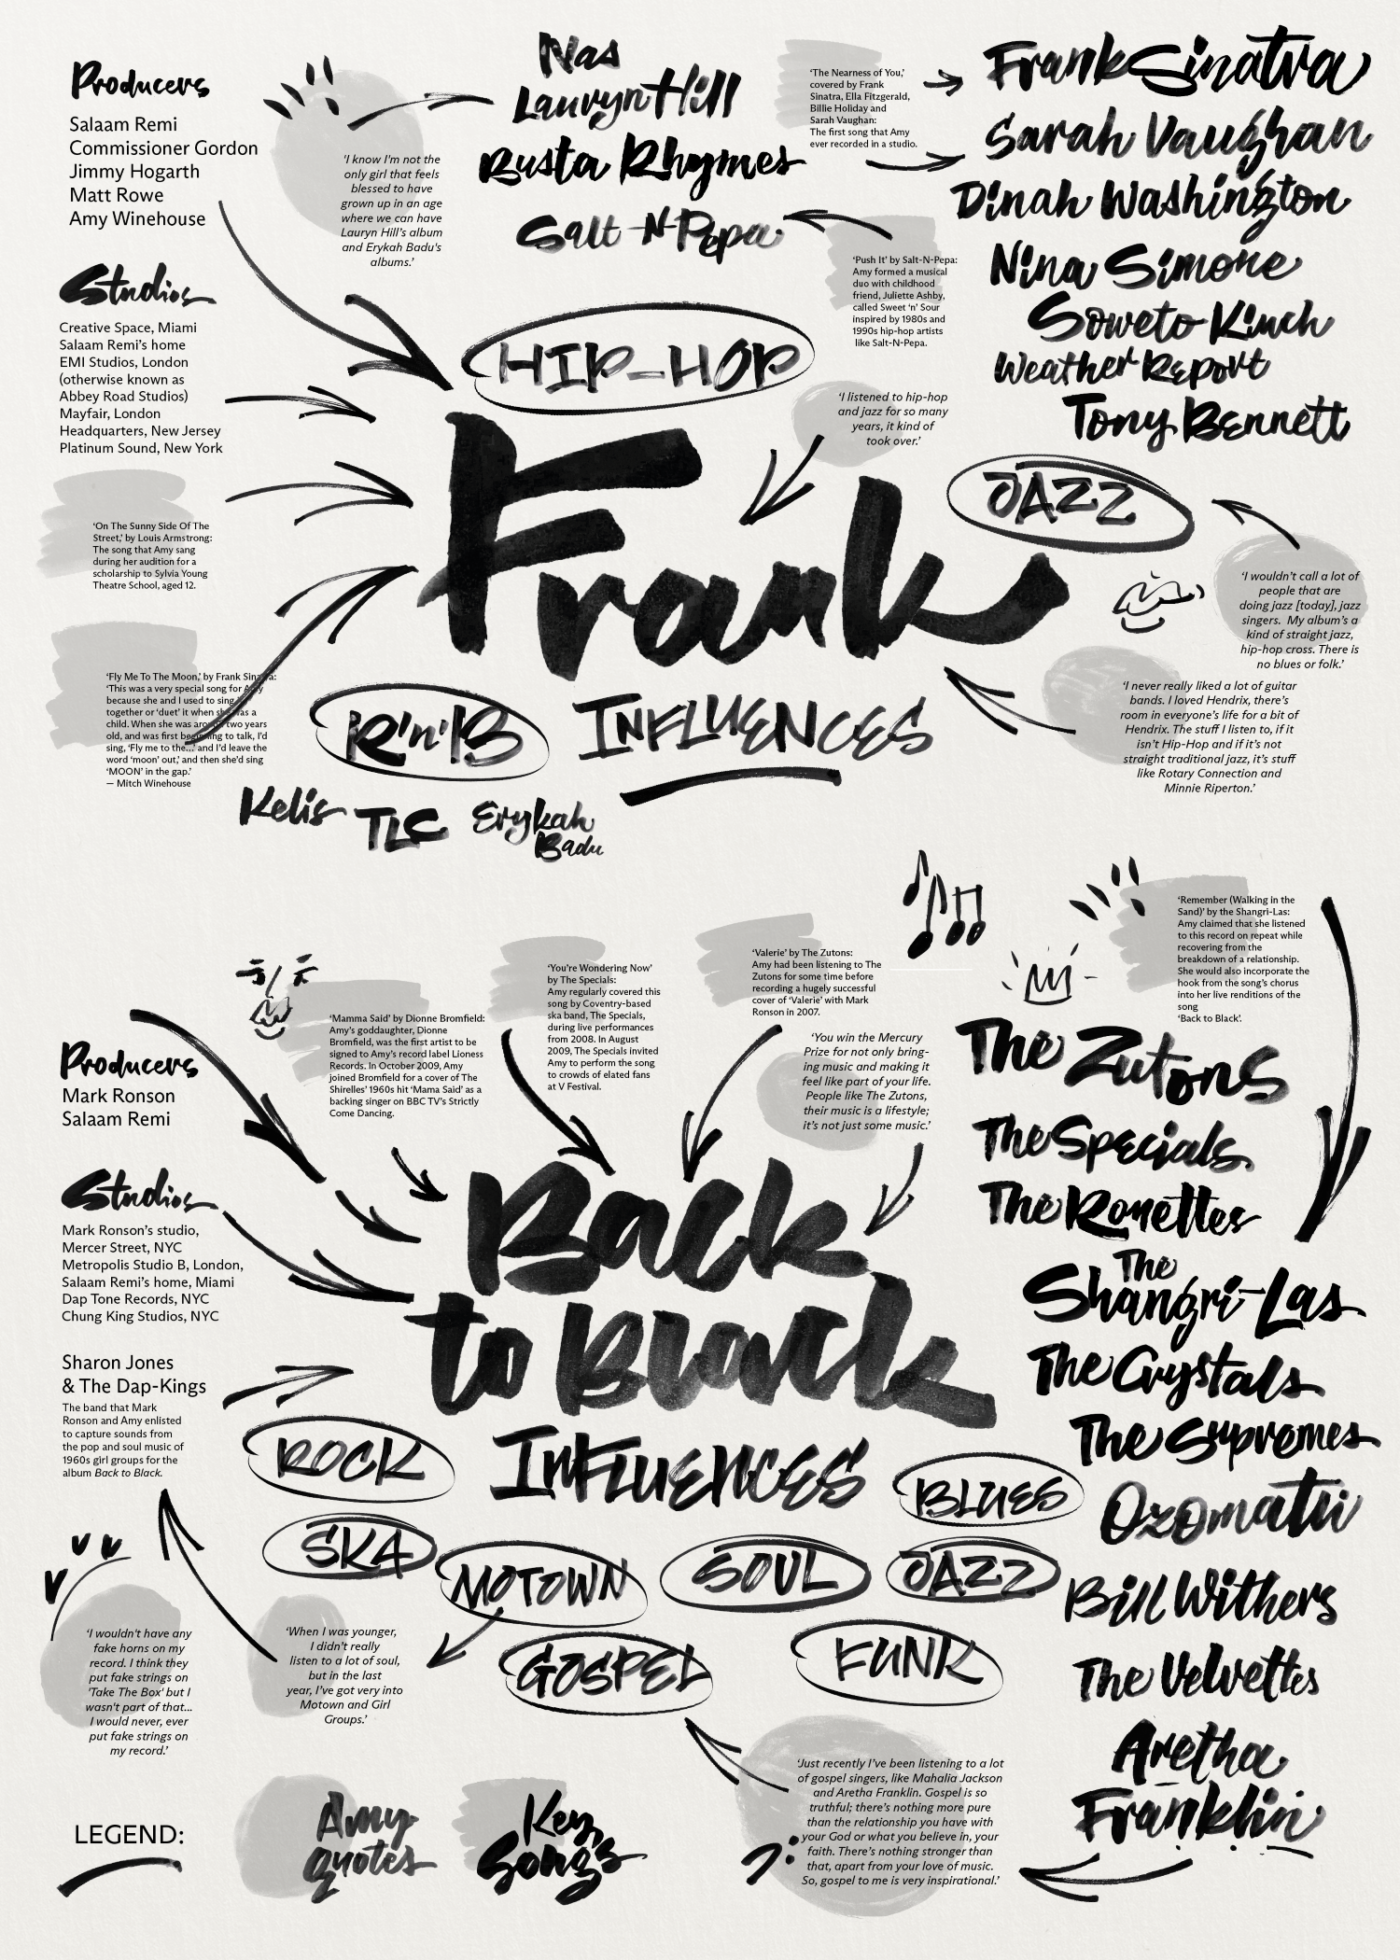 Producers
Salaam Remi
Commissioner Gordon
Jimmy Hogarth
Matt Rowe
Amy Winehouse
Studios
Creative Space, Miami
Salaam Remi's home
EMI Studios, London
(otherwise known as
Abbey Road Studios)
Mayfair, London
Headquarters, New Jersey
Platinum Sound, New York
'On The Sunny Side Of The
Street,' by Louis Armstrong:
The song that Amy sang
during her audition for a
scholarship to Sylvia Young
Theatre School, aged 12.
'Fly Me To The Moon,' by Frank Sinatra:
'This was a very special song for Amy
because she and I used to sing it
together or 'duet' it when she was a
child. When she was around two years
old, and was first beginning to talk, I'd
sing, 'Fly me to the... and I'd leave the
word 'moon' out,' and then she'd sing
'MOON' in the gap.'
— Mitch Winehouse
'I know I'm not the
only girl that feels
blessed to have
grown up in an age
where we can have
Lauryn Hill's album
and Erykah Badu's
albums.'
Nas
Lauryn Hill
Busta Rhymes
Salt-N-Pepa
'The Nearness of You,'
covered by Frank
Sinatra, Ella Fitzgerald,
Billie Holiday and
Sarah Vaughan:
The first song that Amy
ever recorded in a studio.
'Push It' by Salt-N-Pepa:
Amy formed a musical
duo with childhood
friend, Juliette Ashby,
called Sweet 'n' Sour
inspired by 1980s and
1990s hip-hop artists
like Salt-N-Pepa.
Frank Sinatra
Sarah Vaughan
Dinah Washington
Nina Simone
Soweto Kinch
Weather Report
Tony Bennett
HIP-HOP
'I listened to hip-hop
and jazz for so many
years, it kind of
took over.'
Frank
JAZZ
'I wouldn't call a lot of
people that are
doing jazz [today], jazz
singers. My album's a
kind of straight jazz,
hip-hop cross. There is
no blues or folk.'
'I never really liked a lot of guitar
bands. I loved Hendrix, there's
room in everyone's life for a bit of
Hendrix. The stuff I listen to, if it
isn't Hip-Hop and if it's not
straight traditional jazz, it's stuff
like Rotary Connection and
Minnie Riperton.'
R'n'B
INFLUENCES
Kelis
TLC
Erykah
Badu
Producers
Mark Ronson
Salaam Remi
Studios
Mark Ronson's studio,
Mercer Street, NYC
Metropolis Studio B, London,
Salaam Remi's home, Miami
Dap Tone Records, NYC
Chung King Studios, NYC
Sharon Jones
& The Dap-Kings
The band that Mark
Ronson and Amy enlisted
to capture sounds from
the pop and soul music of
1960s girl groups for the
album Back to Black.
'Mamma Said' by Dionne Bromfield:
Amy's goddaughter, Dionne
Bromfield, was the first artist to be
signed to Amy's record label Lioness
Records. In October 2009, Amy
joined Bromfield for a cover of The
Shirelles' 1960s hit 'Mama Said' as a
backing singer on BBC TV's Strictly
Come Dancing.
'You're Wondering Now'
by The Specials:
Amy regularly covered this
song by Coventry-based
ska band, The Specials,
during live performances
from 2008. In August
2009, The Specials invited
Amy to perform the song
to crowds of elated fans
at V Festival.
'Valerie' by The Zutons:
Amy had been listening to The
Zutons for some time before
recording a hugely successful
cover of 'Valerie' with Mark
Ronson in 2007.
'You win the Mercury
Prize for not only bring-
ing music and making it
feel like part of your life.
People like The Zutons,
their music is a lifestyle;
it's not just some music.'
'Remember (Walking in the
Sand)' by the Shangri-Las:
Amy claimed that she listened
to this record on repeat while
recovering from the
breakdown of a relationship.
She would also incorporate the
hook from the song's chorus
into her live renditions of the
song
'Back to Black'.
Back
to Black
INFLUENCES
The Zutons
The Specials
The Ronettes
The
Shangri-Las
The Crystals
The Supremes
Ozomatli
Bill Withers
The Velvettes
Aretha
Franklin
ROCK
BLUES
SKA
MOTOWN
SOUL
JAZZ
GOSPEL
FUNK
'I wouldn't have any
fake horns on my
record. I think they
put fake strings on
'Take The Box' but I
wasn't part of that...
I would never, ever
put fake strings on
my record.'
'When I was younger,
I didn't really
listen to a lot of soul,
but in the last
year, I've got very into
Motown and Girl
Groups.'
'Just recently I've been listening to a lot
of gospel singers, like Mahalia Jackson
and Aretha Franklin. Gospel is so
truthful; there's nothing more pure
than the relationship you have with
your God or what you believe in, your
faith. There's nothing stronger than
that, apart from your love of music.
So, gospel to me is very inspirational.'
LEGEND:
Amy
quotes
Key
Songs